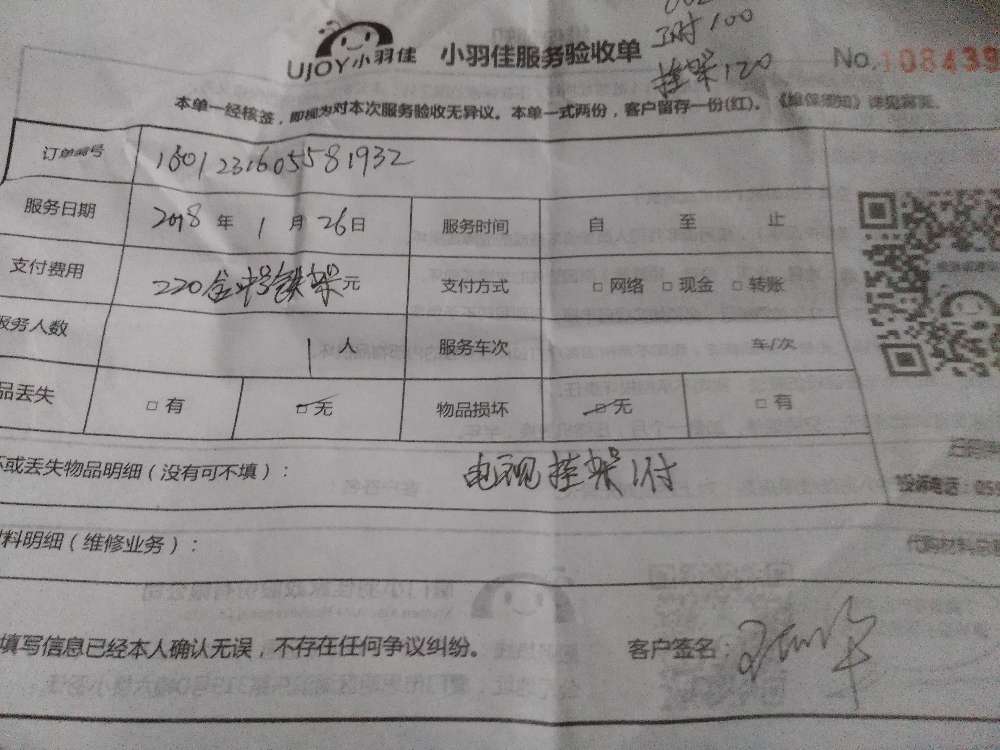 工时100
UJOY小羽佳 小羽佳服务验收单 No.108439
挂架120
本单一经核签，即视为对本次服务验收无异议。本单一式两份，客户留存一份(红)。《维保须知》详见背页。
订单编号 18012316055581932
服务日期 2018 年 1 月 26 日 服务时间 自 至 止
支付费用 220 元 支付方式 □ 网络 □ 现金 □ 转账
服务人数 1 人 服务车次 车/次
品丢失 □ 有 □ 无 物品损坏 □ 无 □ 有
坏或丢失物品明细（没有可不填）： 电视挂架1付
投诉电话
料明细（维修业务）： 代购材料总
填写信息已经本人确认无误，不存在任何争议纠纷。 客户签名：